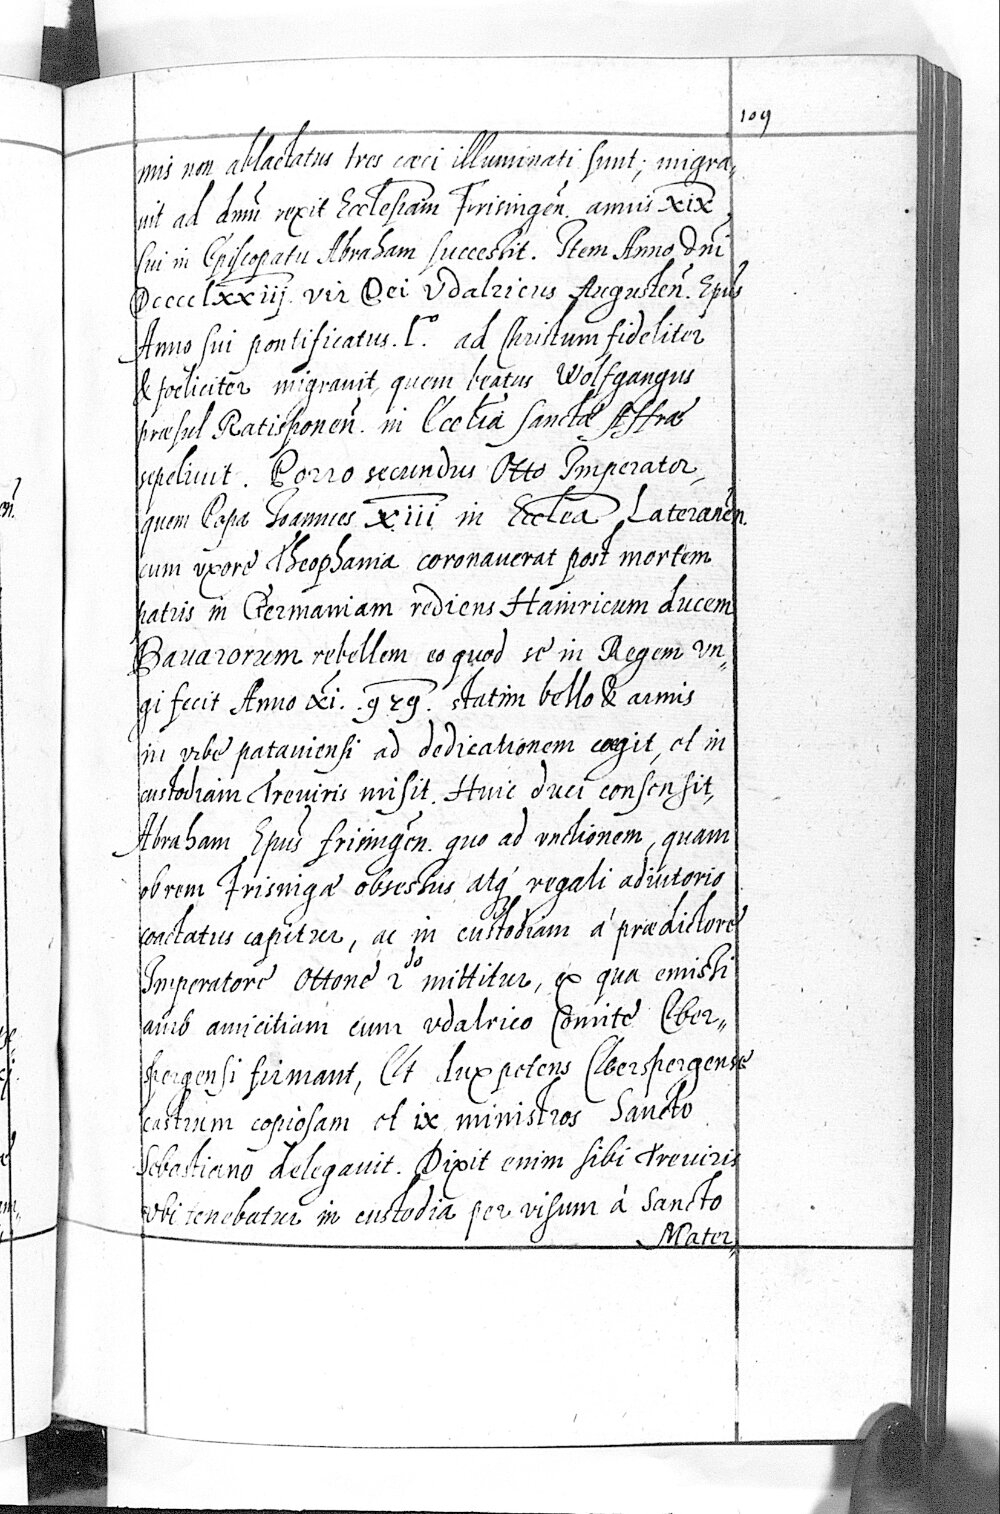 109
mis non ablactatus tres cæci illuminati sunt; migra,,
uit ad dm̄ rexit Ecclesiam Frisingen̄. annis XIX
sui in Episcopatu Abraham successit. Item Anno Dn̄i
DccccLxxiij. vir Dei Vdalricus Augusten̄. Ep̄us
Anno sui pontificatus. L.º ad Christum fideliter
& foeliciter migrauit, quem beatus Wolfgangus
præsul Ratisponen̄. in Eccl̄ia sanctæ Affræ
sepeliuit. Porro secundus Otto Imperator,
quem Papa Joannes XIII in Eccl̄ea Lateranen̄.
cum vxore Theophania coronauerat post mortem
patris in Germaniam rediens Hainricum ducem
Bavarorum rebellem eo quod se in Regem vn,,
gi fecit Anno Xi. 979. statim bello & armis
in vrbe patauiensi ad dedicationem coegit, et in
custodiam Treuiris misit. Huic duci consensit,
Abraham Ep̄us frisingen̄. quo ad vnctionem, quam
obrem Frisingæ obsessus atq́ regali adiutorio
coactatus capitur, ac in custodiam á prædictore
Imperatore Ottone 2do mittitur, ex qua emissi
amb amicitiam cum vdalrico Comite Eber,,
spergensi firmant, Et dux petens Eberspergense
castrum copiosam et ix ministros Sancto
Sebastiano delegauit. Dixit enim sibi Treuiris
vbi tenebatur in custodia per visum á Sancto
Mater,,